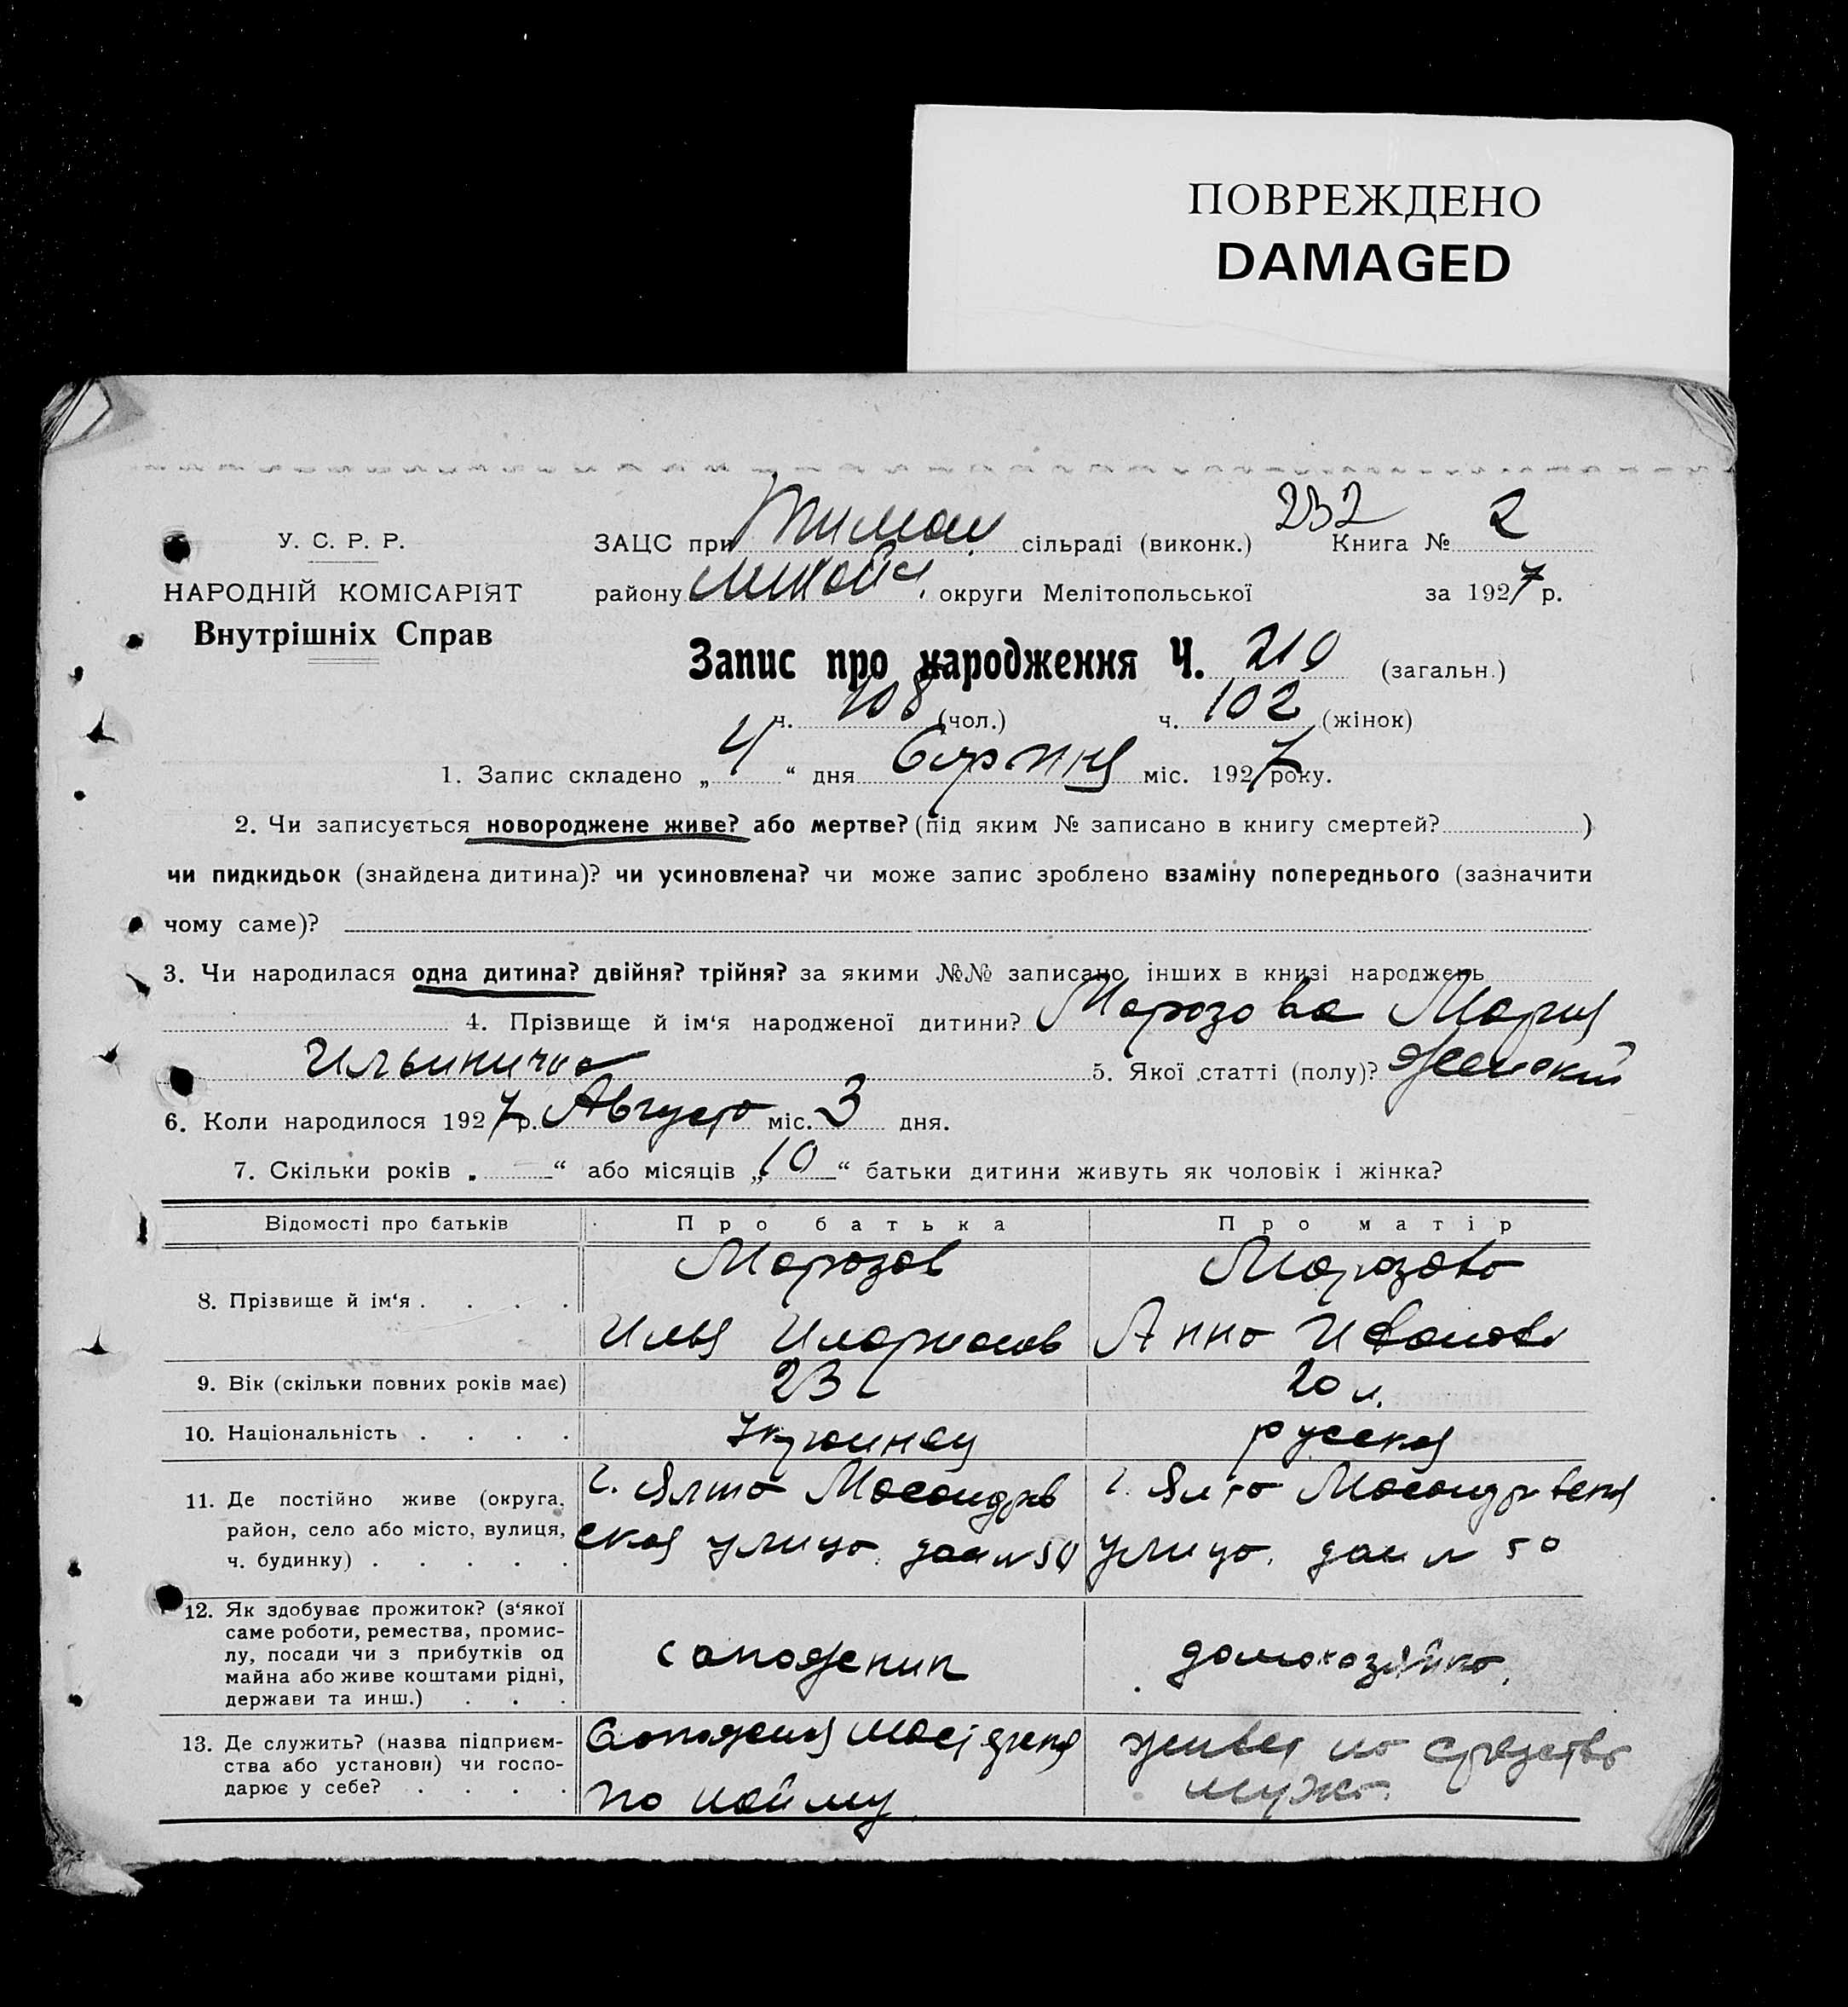 ПОВРЕЖДЕНО
DAMAGED
У. С. Р. Р.
НАРОДНІЙ КОМІСАРІЯТ
Внутрішніх Справ
ЗАЦС при сільраді (виконк.) 232 Книга № 2
району округи Мелітопольської за 1927 р.
Запис про народження Ч. 210 (загальн.)
ч. 108 (чол.) ч. 102 (жінок)
1. Запис складено „ 4 “ дня Серпня міс. 1927 року.
2. Чи записується новороджене живе? або мертве? (під яким № записано в книгу смертей? )
чи пидкидьок (знайдена дитина)? чи усиновлена? чи може запис зроблено взаміну попереднього (зазначити
чому саме)?
3. Чи народилася одна дитина? двійня? трійня? за якими №№ записано інших в книзі народжень
4. Прізвище й ім‘я народженої дитини? Морозова Мария
Ильинична 5. Якої статті (полу)? Женский
6. Коли народилося 1927 р. Августа міс. 3 дня.
7. Скільки років „ — “ або місяців „ 10 “ батьки дитини живуть як чоловік і жінка?
Відомості про батьків Про батька Про матір
8. Прізвище й ім‘я . . . . Морозов Морозова
Илья Анна Иванова
9. Вік (скільки повних років має) 23 20 л.
10. Національність . . . . украинец русская
11. Де постійно живе (округа, район, село або місто, вулиця, ч. будинку) . . . . .
г. Ялта Масандров
ская улица. дом № 50
г. Ялта Масандровская
улица. дом № 50
12. Як здобуває прожиток? (з‘якої
саме роботи, ремества, промис-
лу, посади чи з прибутків од
майна або живе коштами рідні,
держави та инш.) . . .
сапожник домохозяйка.
13. Де служить? (назва підприєм-
ства або установи) чи госпо-
дарює у себе? . . . .
Сапожная
по найму
живет на средства
мужа.